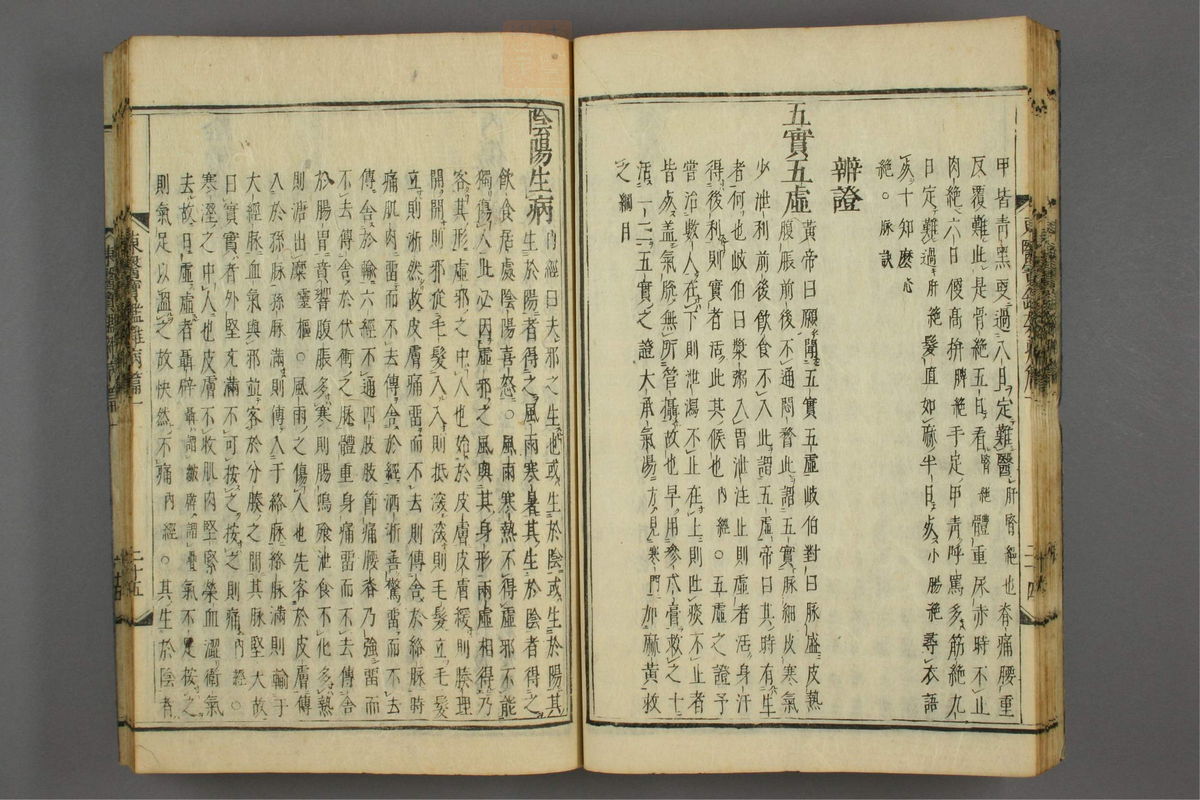 甲皆青黑更過八日定難醫肝腎絶也脊痛腰重
反覆難此是骨絶五日看腎絶體重尿赤時不止
肉絶六日便高拚脾絶手定甲青呼罵多筋絶九
日定難過肝絶髮直如麻半日死小腸絶尋衣語
死十知麽心
絶○脉訣
辨證
五實五虛
黃帝曰願聞五實五虛歧伯對曰脉盛皮熱
腹脹前後不通悶瞀此謂五實脉細皮寒氣
少泄利前後飮食不入此謂五虛帝曰其時有生
者何也歧伯曰漿粥入胃泄注止則虛者活身汗
得後利則實者活此其候也內經○五虛之證予
嘗治數人在下則泄瀉不止在上則吐痰不止者
皆死盖氣脫無所管攝故也早用參朮膏救之十
活一二五實之證大承氣湯方見寒門加麻黃救
之綱目
陰陽生病
內經曰夫邪之生也或生於陰或生於陽其
生於陽者得之風雨寒暑其生於陰者得之
飮食居處陰陽喜怒○風雨寒熱不得虛邪不能
獨傷人此必因虛邪之風與其身形兩虛相得乃
客其形虛邪之中人也始於皮膚皮膚緩則腠理
開開則邪從毛髮入入則抵深深則毛髮立毛髮
立則淅然故皮膚痛留而不去則傳舍於絡脉時
痛肌肉留而不去傳舍於經洒淅善驚留而不去
傳舍於輸六經不通四肢肢節痛腰脊乃強留而
不去傳舍於伏衝之脉體重身痛留而不去傳舍
於腸胃音響腹脹多寒則腸鳴飱泄食不化多熱
則溏出糜靈樞○風雨之傷人也先客於皮膚傳
入於孫脉孫脉滿則傳入于絡脉絡脉滿則輸于
大經脉血氣與邪並客於分腠之間其脉堅大故
曰實實者外堅充滿不可按之按之則痛內經○
寒濕之中人也皮膚不收肌肉堅緊榮血澀衛氣
去故曰虛虛者聶辟聶謂皺辟謂疊氣不足按之
則氣足以溫之故快然不痛內經○其生於陰者
東醫寶鑑雜病篇一
二十五